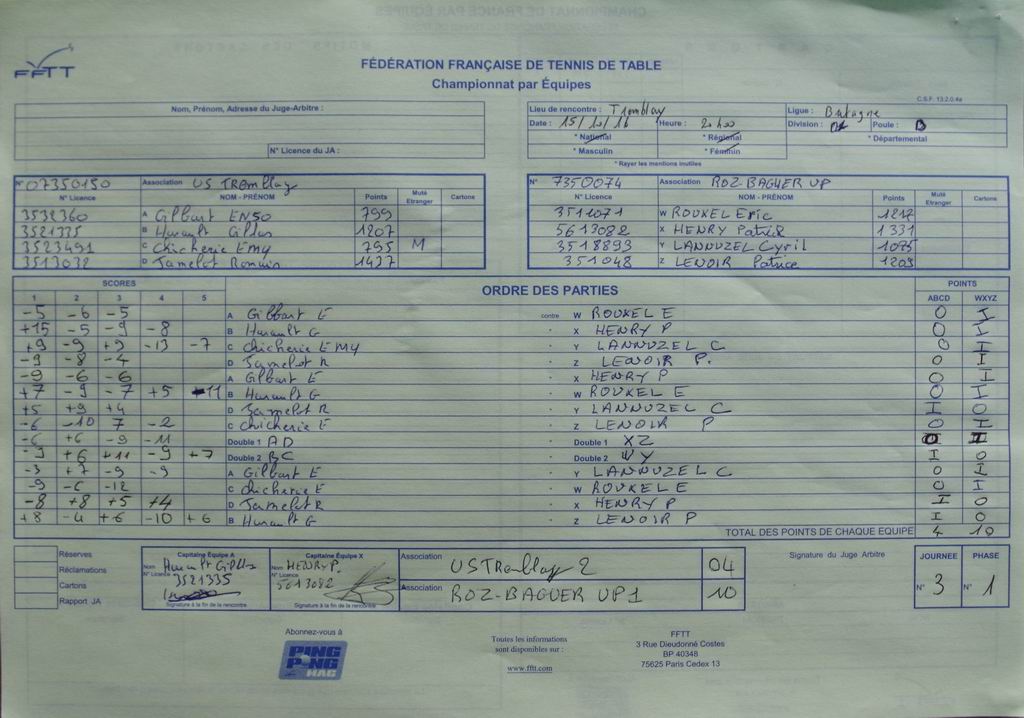 FFTT
FÉDÉRATION FRANÇAISE DE TENNIS DE TABLE
Championnat par Équipes
C.S.F. 13.2.0.4a
Nom, Prénom, Adresse du Juge-Arbitre :
N° Licence du JA :
Lieu de rencontre : Tremblay
Ligue : Bretagne
Date : 15/10/16 Heure : 20h00
Division : Poule : B
* National * Régional * Départemental
* Masculin * Féminin
* Rayer les mentions inutiles
N° 07350150 Association US Tremblay
N° Licence NOM - PRÉNOM Points Muté Etranger Cartons
3532360 A Gilbart ENSO 799
3521335 B Harault Gilles 1207
3523491 C Chicherie EMY 795 M
3513038 D Jamelot Romain 1437
N° 7350074 Association ROZ-BAGUER UP
N° Licence NOM - PRÉNOM Points Muté Etranger Cartons
3511071 W ROUXEL Eric 1212
5613082 X HENRY Patrick 1331
3518893 Y LANNUZEL Cyril 1095
351048 Z LENOIR Patrice 1203
SCORES ORDRE DES PARTIES POINTS
1 2 3 4 5 ABCD WXYZ
-5 -6 -5 A Gilbart E contre W ROUXEL E 0 I
+15 -5 -9 -8 B Harault G X HENRY P 0 I
+9 -9 +9 -13 -7 C Chicherie EMY Y LANNUZEL C 0 I
-9 -8 -4 D Jamelot R Z LENOIR P. 0 I
-9 -6 -6 A Gilbart E X HENRY P 0 I
+7 -9 -7 +5 -11 B Harault G W ROUXEL E 0 I
+5 +9 +4 D Jamelot R Y LANNUZEL C I 0
-6 -10 7 -2 C Chicherie E Z LENOIR P 0 I
-6 +6 -9 -11 Double 1 AD Double 1 XZ 0 I
-9 +6 +11 -9 +7 Double 2 BC Double 2 WY I 0
-3 +7 -9 -9 A Gilbart E Y LANNUZEL C 0 I
-9 -6 -12 C Chicherie E W ROUXEL E 0 I
-8 +8 +5 +4 D Jamelot R X HENRY P I 0
+8 -4 +6 -10 +6 B Harault G Z LENOIR P I 0
TOTAL DES POINTS DE CHAQUE EQUIPE 4 10
Réserves
Réclamations
Cartons
Rapport JA
Capitaine Équipe A
Nom Harault Gilles
N° Licence 3521335
Signature à la fin de la rencontre
Capitaine Équipe X
Nom HENRY P.
N° Licence 5613082
Signature à la fin de la rencontre
Association US Tremblay 2 04
Association ROZ-BAGUER UP1 10
Signature du Juge Arbitre
JOURNEE PHASE
N° 3 N° 1
Abonnez-vous à
PING PONG MAG
Toutes les informations
sont disponibles sur :
www.fftt.com
FFTT
3 Rue Dieudonné Costes
BP 40348
75625 Paris Cedex 13